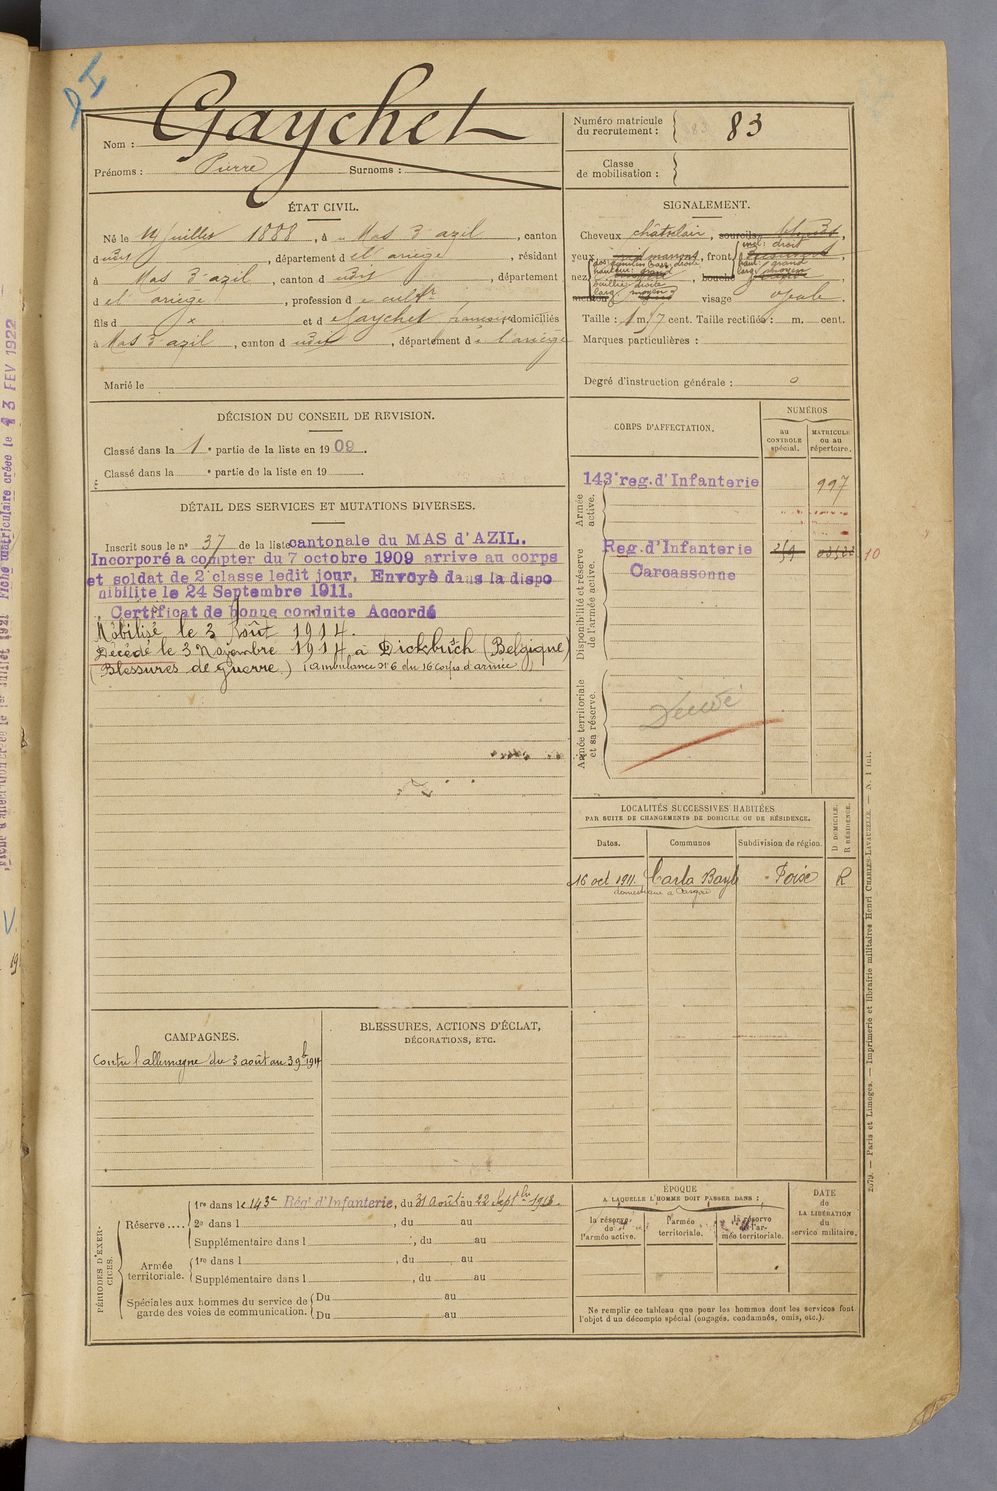 Gaychet
Nom :
Prénoms : Pierre Surnoms :
Numéro matricule
du recrutement : 83
Classe
de mobilisation :
ÉTAT CIVIL.
Né le Juillet 1888, à Mas d'azil, canton
dudit, département de l'ariège, résidant
à Mas d'azil, canton dudit, département
de l'ariège, profession de cultr
fils d x et de Gaychet domiciliés
à Mas d'azil, canton dudit, département de l'ariège
Marié le
SIGNALEMENT.
Cheveux châtclair, sourcils blonds,
incl: droit
yeux marrons, front
haut: grand
larg: moyen
nez
hauteur: grand
saillie: droite
larg: moyen
bouche
menton visage ovale.
Taille : 1 m. 57 cent. Taille rectifiée : m. cent.
Marques particulières :
Degré d'instruction générale : 0
DÉCISION DU CONSEIL DE REVISION.
Classé dans la 1e partie de la liste en 1909.
Classé dans la e partie de la liste en 19
CORPS D'AFFECTATION.
NUMÉROS
au
CONTROLE
spécial.
MATRICULE
ou au
répertoire.
Armée
active.
143e reg. d'Infanterie 997
Disponibilité et réserve
de l'armée active.
Reg. d'Infanterie
Carcassonne
10
Armée territoriale
et sa réserve.
DÉTAIL DES SERVICES ET MUTATIONS DIVERSES.
Inscrit sous le no 37 de la liste cantonale du MAS d'AZIL.
Incorporé a compter du 7 octobre 1909 arrive au corps
et soldat de 2e classe ledit jour, Envoyé dans la dispo
nibilite le 24 Septembre 1911.
Certificat de bonne conduite Accordé
Mobilisé le 3 Août 1914.
Décédé le 3 Novembre 1914 à Dickbuch (Belgique)
(Blessures de guerre.) (ambulance no 6 du 16 corps d'armée)
LOCALITÉS SUCCESSIVES HABITÉES
PAR SUITE DE CHANGEMENTS DE DOMICILE OU DE RÉSIDENCE.
Dates. Communes Subdivision de région. D. DOMICILE. R RÉSIDENCE.
16 oct 1911. Carla Bayle Foix R
CAMPAGNES.
Contre l'allemagne du 3 août au 3 9bre 1914
BLESSURES, ACTIONS D'ÉCLAT,
DÉCORATIONS, ETC.
PÉRIODES D'EXER-
CICES.
Réserve ....
1re dans le 143e Régt d'Infanterie, du 31 Août au 22 Septbre 1913.
2e dans l , du au
Supplémentaire dans l , du au
Armée
territoriale.
1re dans l , du au
Supplémentaire dans l , du au
Spéciales aux hommes du service de
garde des voies de communication.
Du au
Du au
ÉPOQUE
A LAQUELLE L'HOMME DOIT PASSER DANS :
la réserve
de
l'armée active.
l'armée
territoriale.
la réserve
de l'ar-
mée territoriale.
DATE
de
LA LIBÉRATION
du
service militaire.
Ne remplir ce tableau que pour les hommes dont les services font
l'objet d'un décompte spécial (engagés, condamnés, omis, etc.).
2579. — Paris et Limoges. — Imprimerie et librairie militaires Henri CHARLES-LAVAUZELLE. — N. 1 int.
Fiche matriculaire créée le 13 FEV 1922